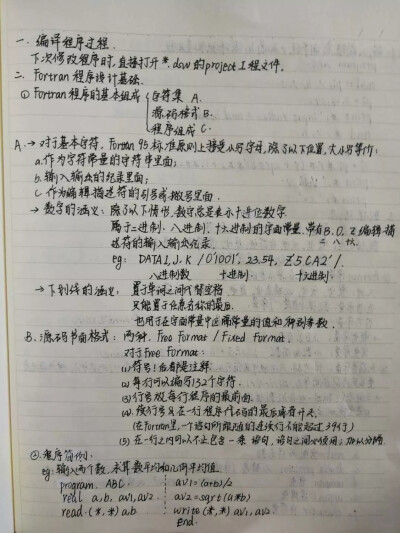 一. 编译程序过程.
下次修改程序时, 直接打开 *.dsw 的 project 工程文件.
二. Fortran 程序设计基础.
① Fortran 程序的基本组成 { 字符集 A.
源码格式 B.
程序组成 C.
A. → 对于基本字符, Fortran 95 标准原则上接受小写字母, 除了以下位置, 大小写等价:
a. 作为字符常量的字符串里面;
b. 输入输出的纪录里面;
c. 作为编辑描述符的引号或撇号里面.
→ 数字的涵义: 除了以下情形, 数字总是表示十进位数字
属于二进制、八进制、十六进制的字面常量, 带有 B, O, Z 编辑描
述符的输入输出纪录. 二 八 十六
eg: DATA I, J, K / O'1001', 23.54, Z'5CA2' /.
八进制数 十进制. 十六进制.
→ 下划线的涵义: 置于单词之间代替空格
又能置于任意名称的最后.
也用于在字面常量中区隔常量的值和种别参数.
B. 源码书面格式: 两种. Free Format / Fixed Format.
对于 Free Format:
(1) 符号!后看是注释
(2) 每行可以编写132个字符.
(3) 行号放每行程序的最前面.
(4) 一行程序代码的最后
(在Fortran里, 一个语句所跟随的连续行不能超过39行)
(5) 在一行之内可以不止包含一条语句, 语句之间必须用; 加以分隔.
② 程序简例.
eg: 输入两个数, 求算数平均和几何平均值.
program ABC av1=(a+b)/2
real a, b, av1, av2 av2=sqrt(a*b)
read (*,*) a,b write (*,*) av1, av2
end.